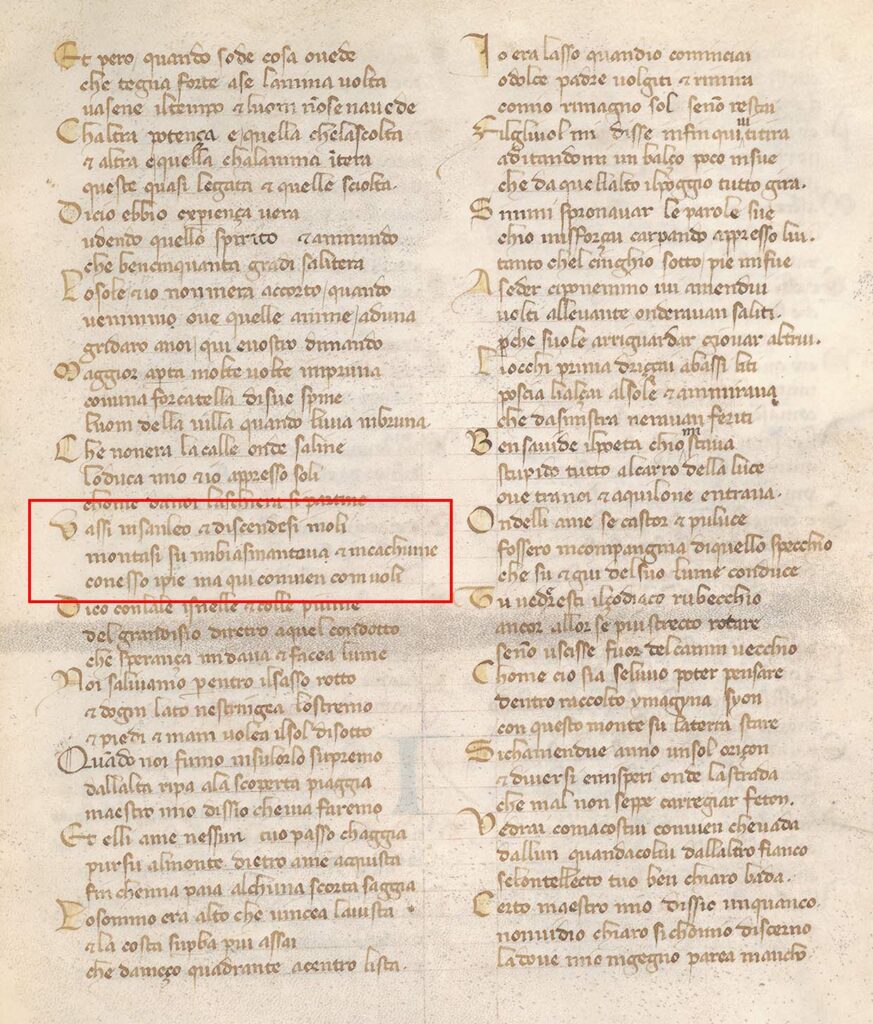 Et pero quando sode cosa ouede
che tegna forte ase lanima uolta
uasene iltempo & luom nõsenauede
Chaltra potença e quella chelascolta
& altra equella chalanima ĩtera
queste quasi legata & quelle sciolta.
Dicio ebbio expiença uera
udendo quello spirito & amirando
che bencinquanta gradi salitera
Losole & io nonmera accorto quando
uenimmo oue quelle anime aduna
gridaro anoi qui euostro dimando
Maggior apta molte uolte impruna
conuna forcatella disue spine
luom della uilla quando luua inbruna.
Che nonera la calle onde saline
loduca mio & io appresso soli
chome danoi laschiera si partine
Vassi insanleo & discendesi inoli
montasi su inbismantoua & incachume
conesso ipie ma qui conuien comuoli
Dico conlale isnelle & colle piume
del grandisio diretro aquel condotto
che sperança mi daua & facea lume
Noi saliuamo pentro ilsasso rotto
& dogin lato nestringea lostremo
& piedi & mani uolea ilsol disotto
Quãdo noi fumo insulorlo supremo
dallalta ripa ala scoperta piaggia
maestro mio dissio cheuia faremo
Et elli ame nessun tuo passo chaggia
pur su almonte dietro ame acquista
fin chenna paia alchuna scorta saggia
Losommo era alto che uincea lauista
& la costa supba piu assai
che dameço quadrante acentro lista.
Io era lasso quandio cominciai
odolce padre uolgiti & rimira
comio rimagno sol senõ restai
Filgliuol mi disse infinqui titira
aditandomi un balço poco insue
che da quellalto ilpoggio tutto gira.
Simmi spronauar le parole sue
chio misforçai carpando appresso lui.
tanto chel cinghio sotto pie mifue
Aseder ciponemmo iui amendui
uolti alleuante onderauan saliti.
pche suole arriguardar giouar altrui.
Liocchi prima driçai abassi liti
poscia lialçai alsole & ammiraua
che dasinistra nerauan feriti
Ben sauide ilpoeta chio staua
stupido tutto alcarro della luce
oue tranoi & aquilone entraua.
Ondelli ame se castor & puluce
fossero incompangnia diquello specchio
che su & giu delsuo lume conduce
Tu uedresti ilçodiaco rubecchio
ancor allorse piu strecto rotare
senõ uscisse fuor delcamin uecchio
Chome cio sia seluuo poter pensare
dentro raccolto ymagina syon
con questo monte su laterra stare
Sichamendue anno unsol oriçon
& diuersi emisperi onde lastrada
che mal non seppe carregiar feton.
Vedrai comacostui conuien cheuada
dallun quandacolui dallaltro fianco
selontellecto tuo ben chiaro bada.
Certo maestro mio dissio unquanco
nonuidio chiaro si chomio discerno
ladoue mio ingegno parea mancho.